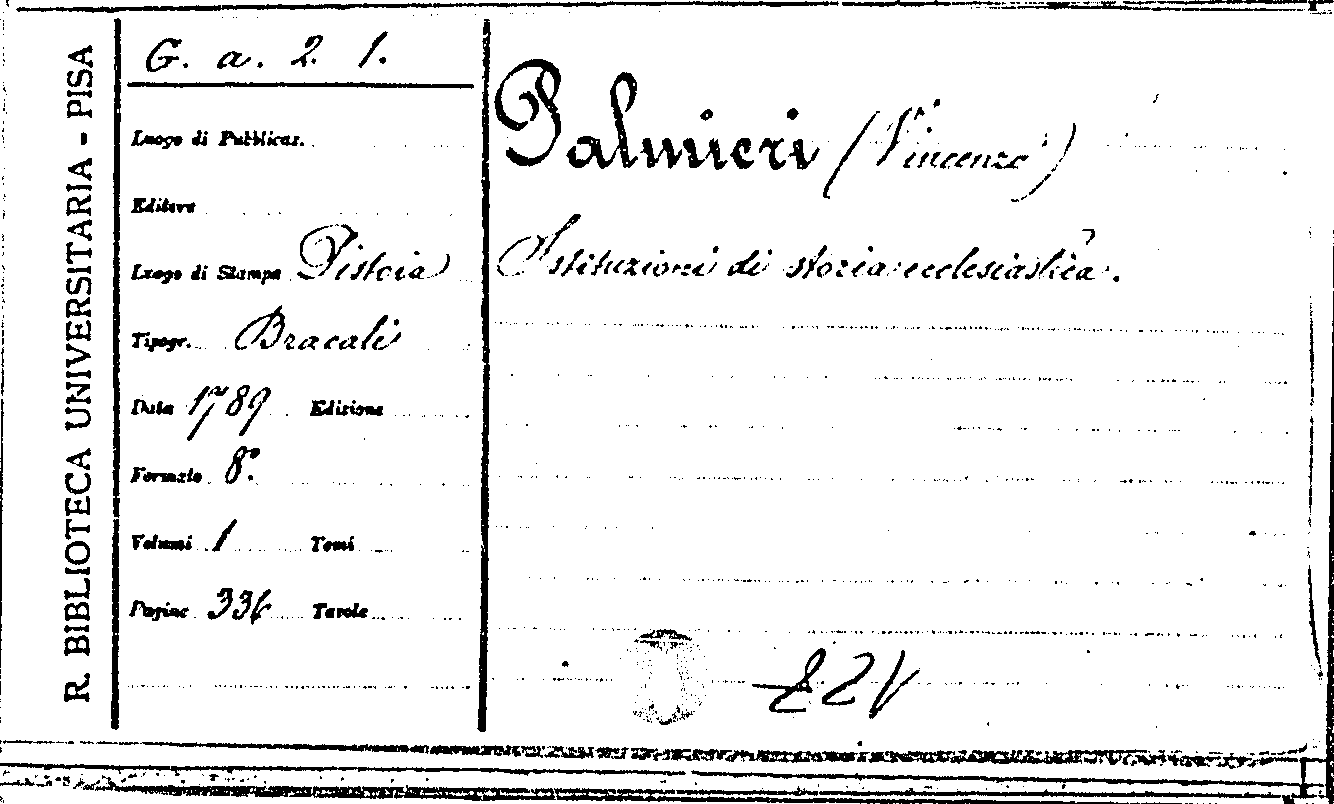 R. BIBLIOTECA UNIVERSITARIA - PISA
G. a. 2 1.
Luogo di Pubblicaz.
Editore
Luogo di Stampa Pistoia
Tipogr. Bracali
Data 1789 Edizione
Formato 8°.
Volumi 1 Tomi
Pagine 336 Tavole
Palmieri (Vincenzo)
Istituzioni di storia ecclesiastica.